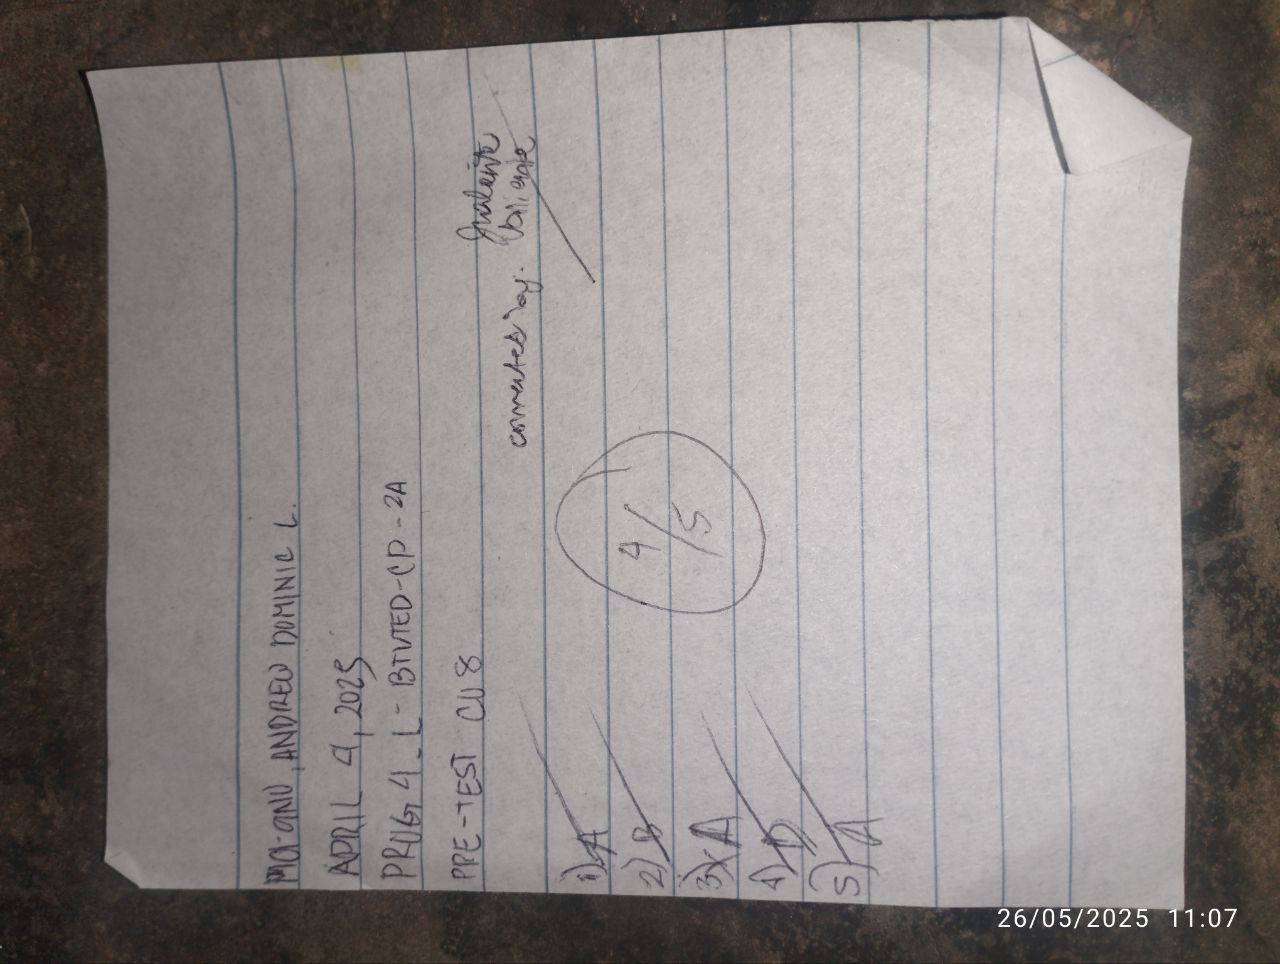 MA-ANO, ANDREW DOMINIC L.
APRIL 4, 2025
PROG 4_L- BTVTED-CP-2A
PRE-TEST CU 8
corrected by.
1) A
2) B
3)x A
4) D
5) A
4/5
26/05/2025 11:07